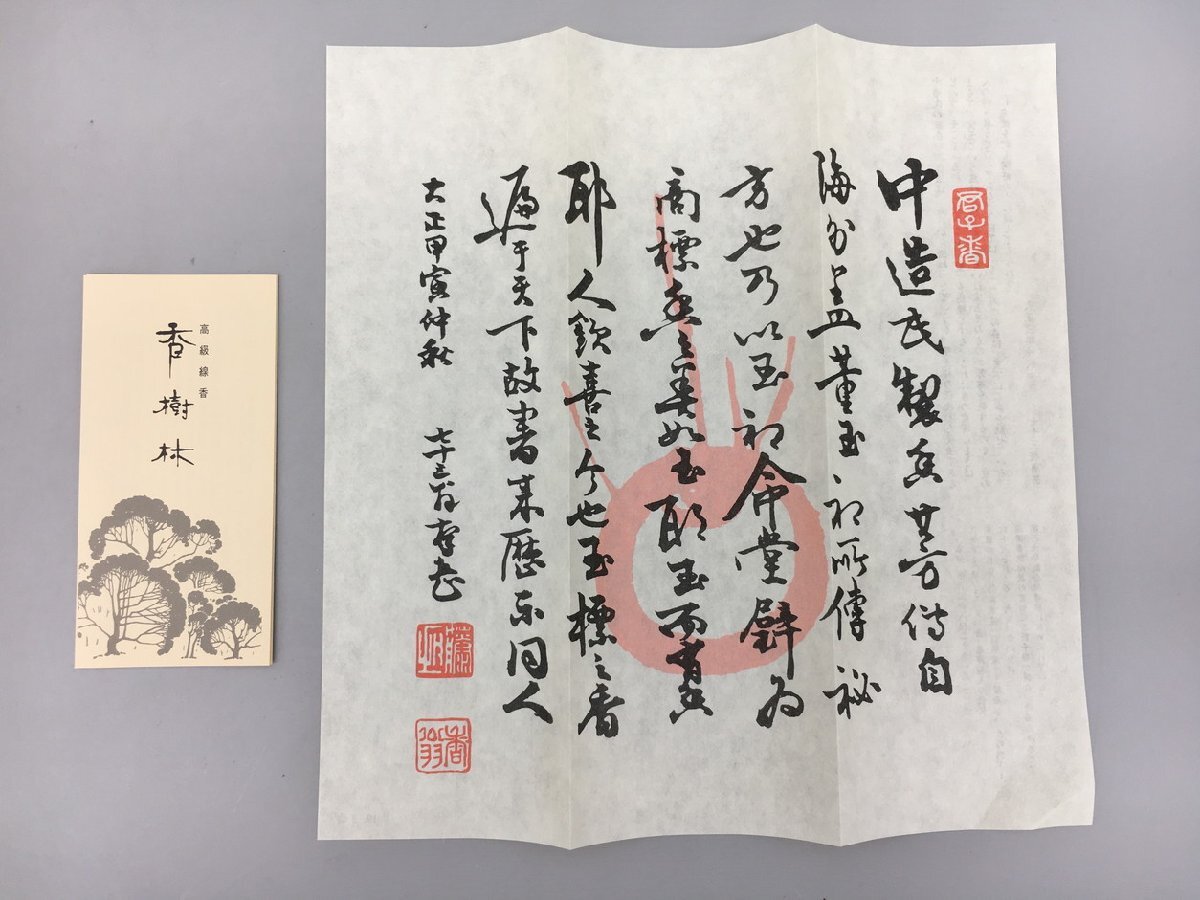 君子香
中造氏製香其方傳自
海外蓋董玉初所傳秘
方也乃以玉初命堂為
商標香之美如玉耶玉而有香
耶人欽喜之今也玉標之香
遍于天下故書来歴示同人
大正甲寅仲秋 七十三翁
香翁
高級線香
香樹林